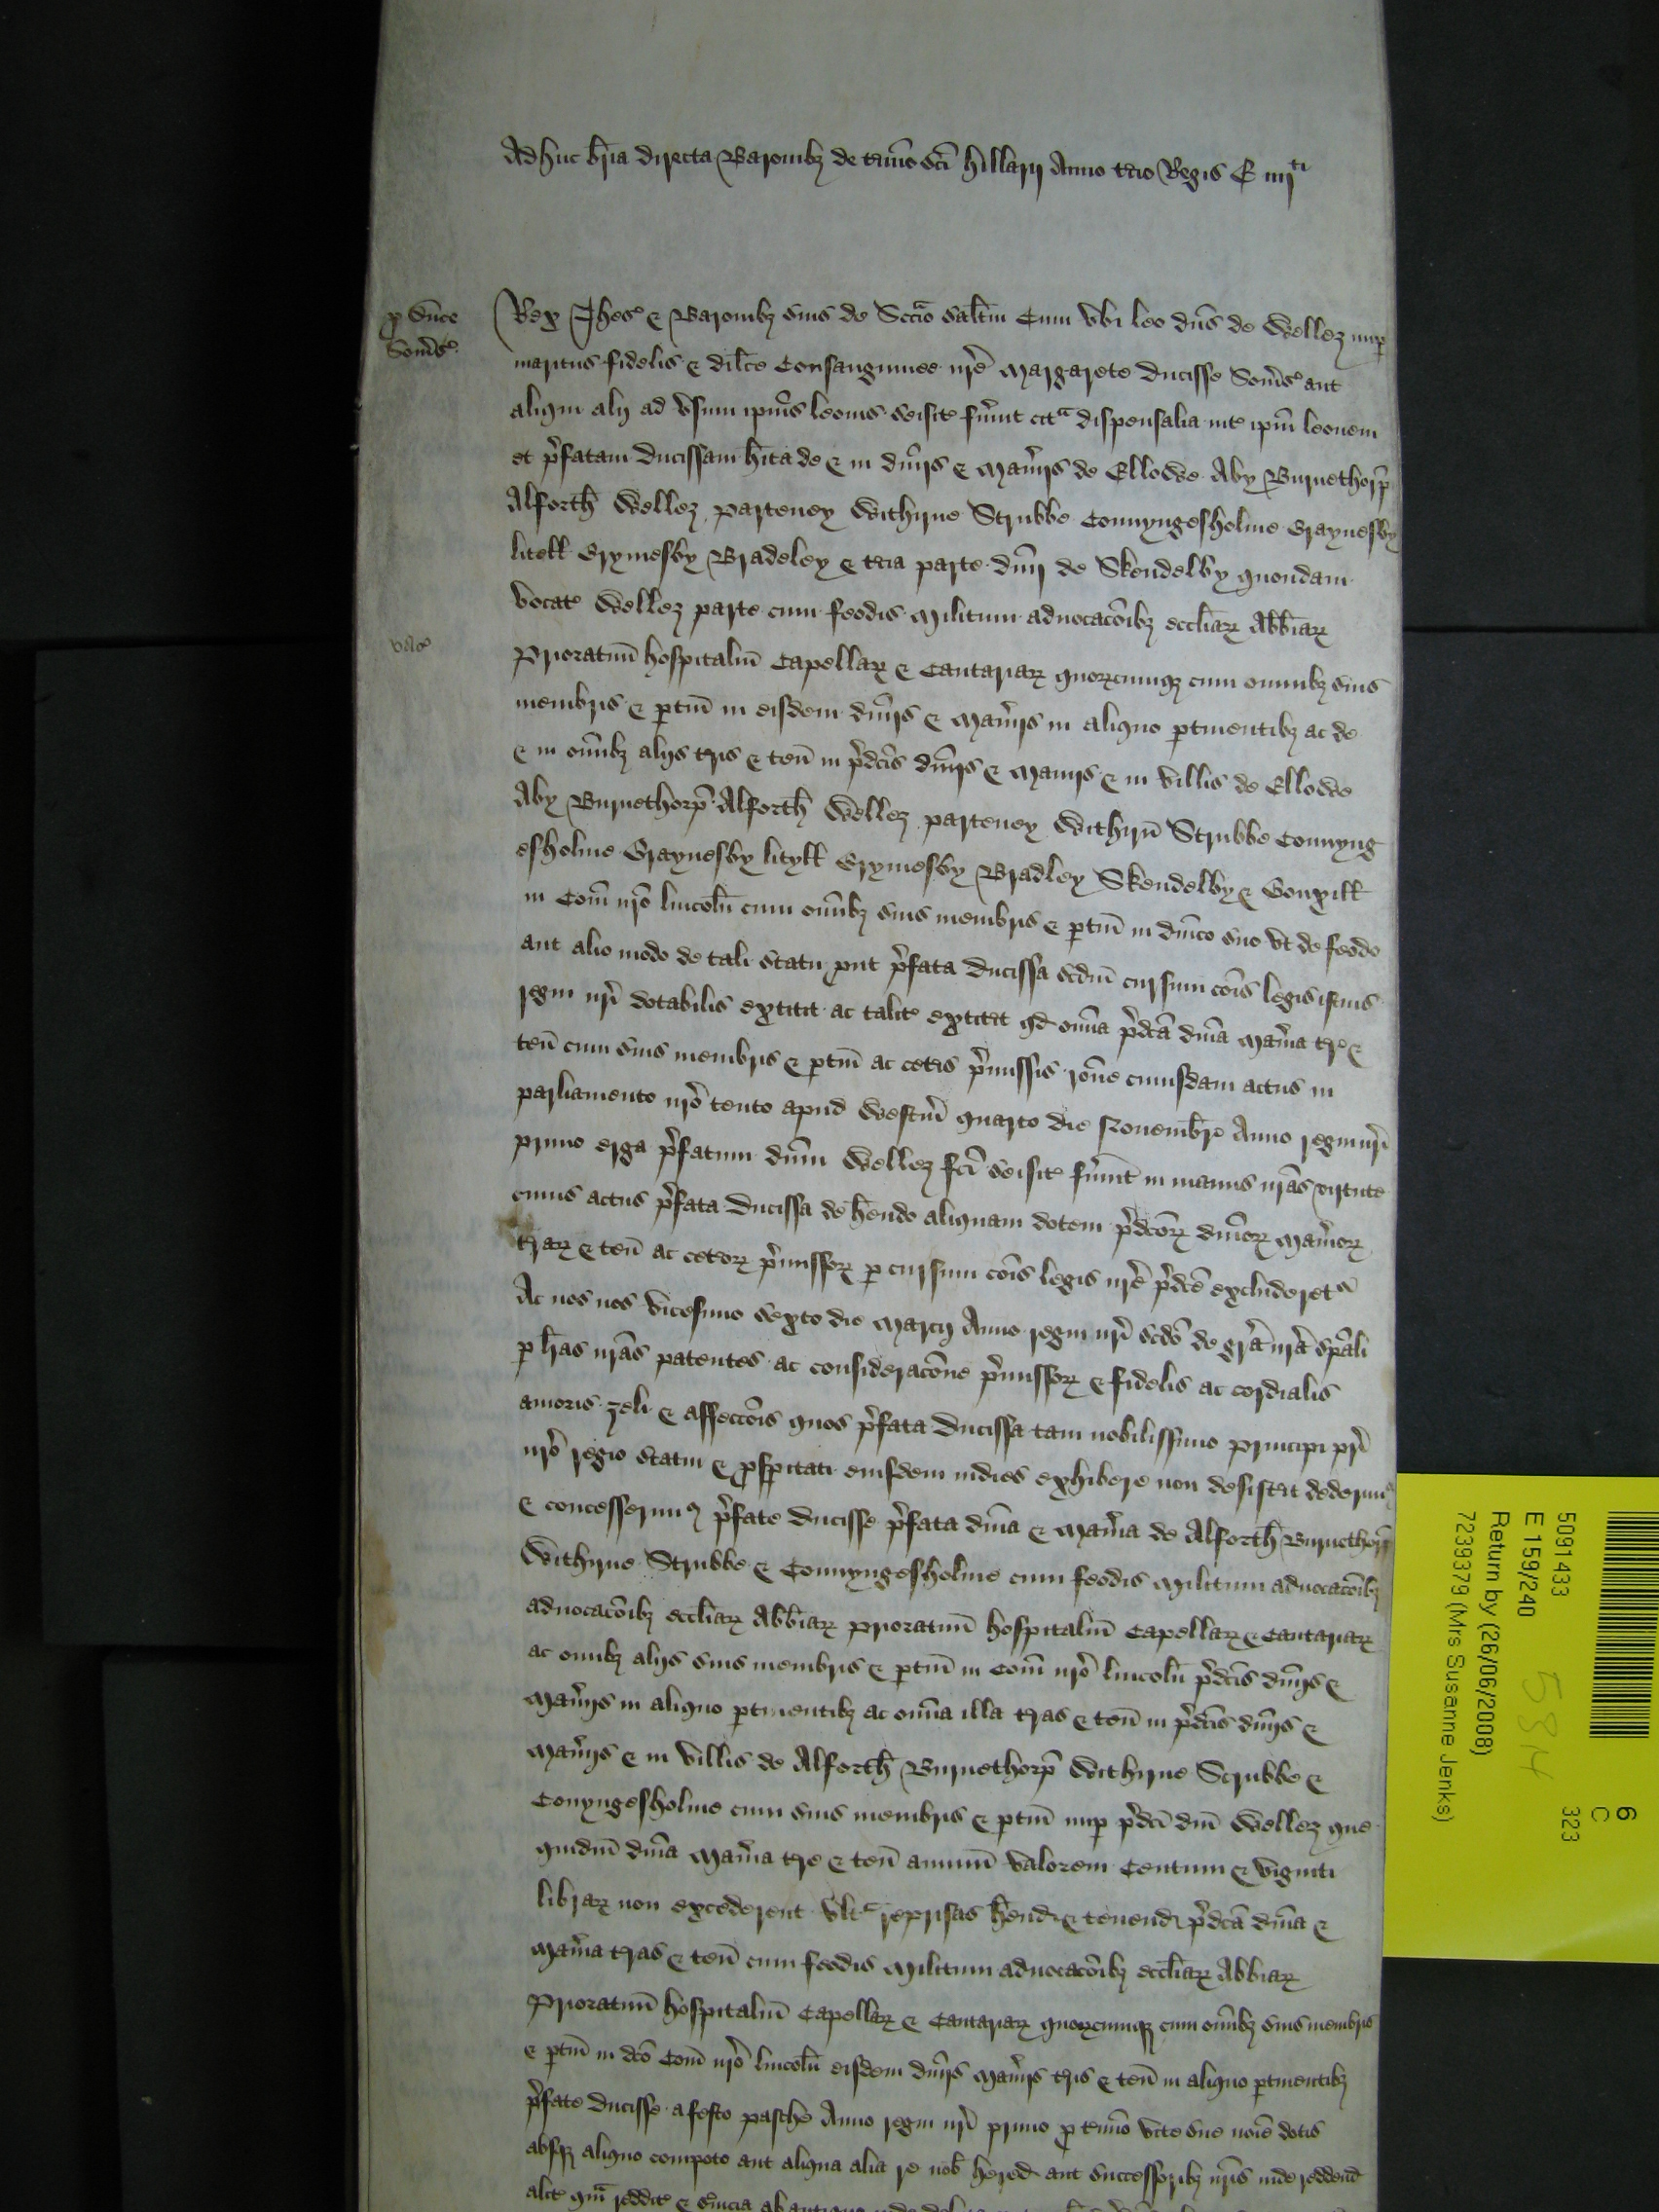 Adhuc br̄ia directa Baronibȝ de t̄mino sc̄i Hillarij Anno t̄cio Regis E iiijti
p Duc̄e
Som̄s
Rex Thes' & Baronibȝ suis de Sccīo salt̄m Cum vbi leo dn̄s de Wellez nup
maritus fidelis & dil̄ce Consanguinee nr̄e Margarete ducisse Som̄s' aut
aliqui alij ad vsum ipīus leonis seisit' fu'unt citᵃ dispensalia int' ip̄m leonem
et p'fatam ducissam h̄ita de & in dn̄ijs & Man'ijs de Ellowe Aby Burnethorp'
Alforth Wellez parteney Withyrne Strubbe Connyngesholme Graynesby
litell Grymesby Bradeley & t'cia parte dn̄ij de Skendelby quondam
vocat' Wellez parte cum feodis militum aduocac̄oibȝ eccl̄iarꝝ Abb̄iarꝝ
Prioratuū hospitaliū Capellarꝝ & Cantariarꝝ quorꝝcumqȝ cum omnibȝ suis
membris & ptin̄ in eisdem dn̄ijs & Man'ijs in aliquo ptinentibȝ ac de
& in om̄ibȝ alijs t'ris & ten̄ in p'dc̄is dn̄ijs & Man'ijs & in villis de Ellowe
Aby Burnethorp' Alforth Wellez parteney Withyrn̄ Strubbe Connyng
esholme Graynesby lityll Grymesby Bradley Skendelby & Gouxill
in Com̄ nr̄o lincoln̄ cum om̄ibȝ suis membris & ptin̄ in dn̄ico suo vt de feodo
aut alio modo de tali statu put p'fata ducissa scdm̄ cursum cōis legis istius
regni nr̄i dotabilis extitit ac talit' extitit qd om̄ia p'dc̄a dn̄ia Man'ia t're &
ten̄ cum suis membris & ptin̄ ac cet'is p'missis rōne cuiusdam actus in
parliamento nr̄o tento apud Westm̄ quarto die Nouembr̄ Anno regni nr̄i
primo erga p'fatum dn̄m Wellez fc̄i seisit' fu'unt in manus nr̄as virtute
cuius actus p'fata ducissa de h̄endo aliquam dotem p'dc̄orꝝ dn̄iorꝝ Man'iorꝝ
t'rarꝝ & ten̄ ac cet'orꝝ p'missorꝝ p cursum cōis legis nr̄e p'dc̄e excluderet'
Ac nos nos vicesimo sexto die Marcij Anno regni nr̄i scdo de gr̄a nr̄a sp̄ali
p l'ras nr̄as patentes ac considerac̄one p'missorꝝ & fidelis ac cordialis
amoris zeli & affecc̄ois quos p'fata ducissa tam nobilissimo principi pr̄i
nr̄o regio statui & pspitati eiusdem indies exhibere non desistat dederim'
& concesserimꝰ p'fate ducisse p'fata dn̄ia & Man'ia de Alforth Burnethorp'
Withyrne Strubbe & Connyngesholme cum feodis militum aduocac̄oibȝ
aduocac̄oibȝ eccl̄iarꝝ Abb̄iarꝝ prioratuū hospitaliū Capellarꝝ & Cantariarꝝ
ac om̄ibȝ alijs suis membris & ptin̄ in Com̄ nr̄o lincoln̄ p'dc̄is dn̄ijs &
Man'ijs in aliquo ptinentibȝ ac om̄ia illa t'ras & ten̄ in p'dc̄is dn̄ijs &
Man'ijs & in villis de Alforth Burnethorp' Withyrne Scrubbe &
Conyngesholme cum suis membris & ptin̄ nup p'dc̄i dn̄i Wellez que
quidm̄ dn̄ia Man'ia t're & ten̄ annuū valorem Centum & viginti
librarꝝ non excederent vltᵃ reprisas h̄end' & tenend' p'dc̄a dn̄ia &
Man'ia t'ras & ten̄ cum feodis militum aduocac̄oibȝ eccl̄iarꝝ Abbiarꝝ
Prioratuū hospitaliū Capellarꝝ & Cantariarꝝ quorꝝcumqȝ cum om̄ibȝ suis membris
& ptin̄ in dc̄o Com̄ nr̄o lincoln̄ eisdem dn̄ijs Man'ijs t'ris & ten̄ in aliquo ptinentibȝ
p'fate ducisse a festo pasche Anno regni nr̄i primo p t'mino vite sue noīe dotis
absqȝ aliquo compoto aut aliqua alia re nob' hered' aut successoribȝ nr̄is inde reddend'
5091433
E 159/240
Return by (26/06/2008)
7239379 (Mrs Susanne Jenks)
5814
6
C
323